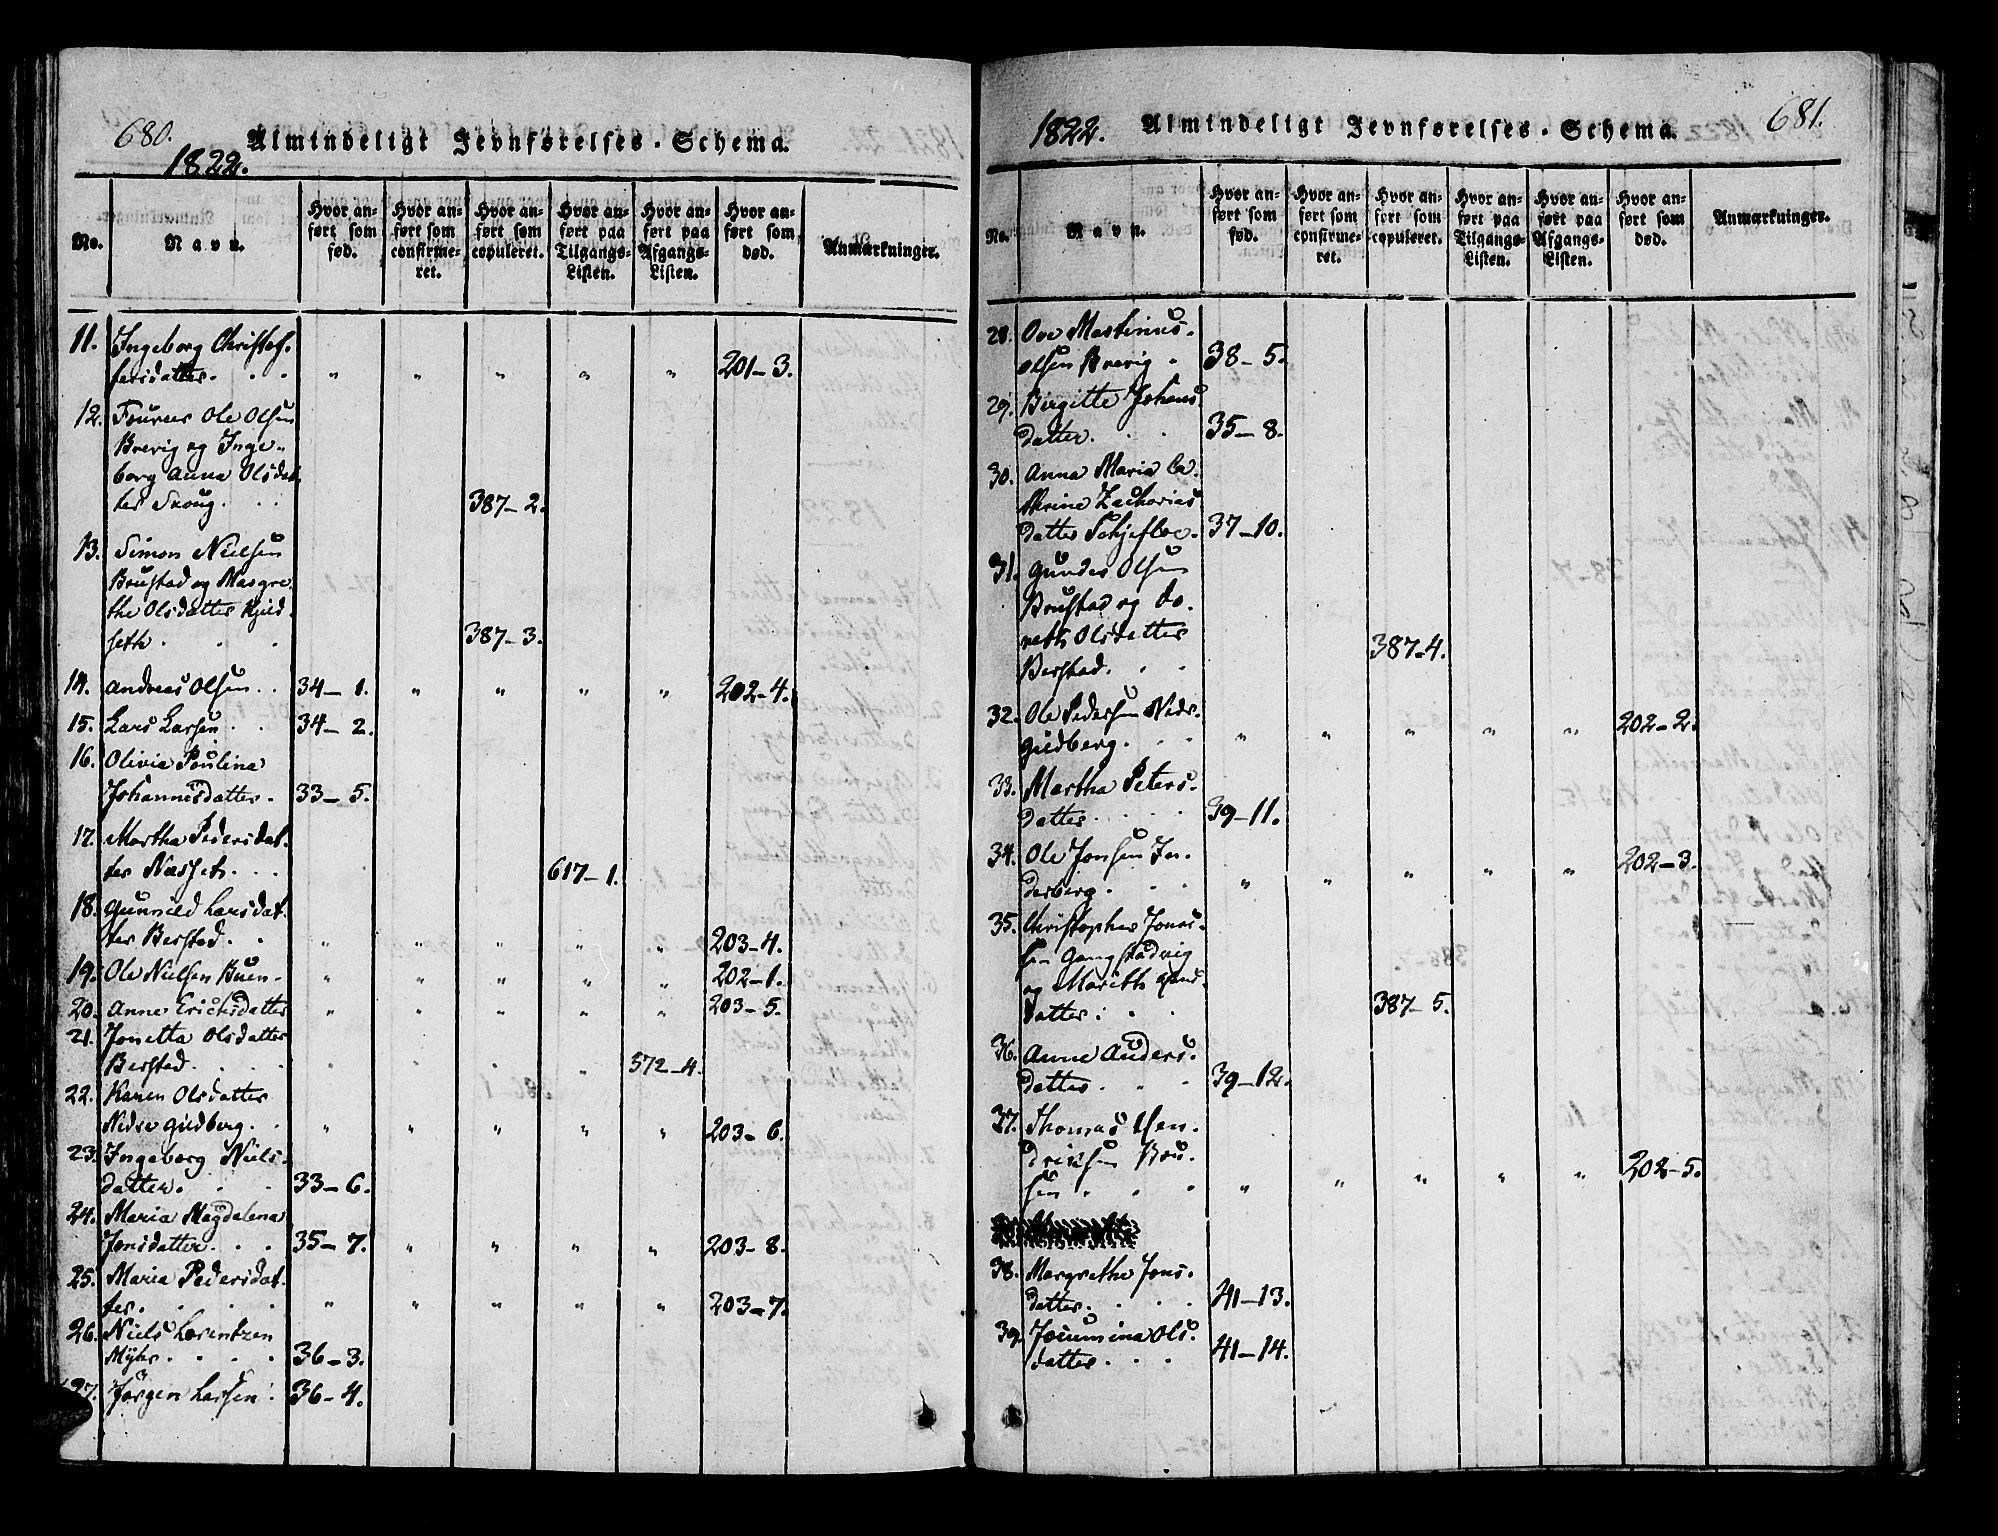 680.
1822. Almindeligt Jevnførelses-Schema.
No. Navn. Hvor anført som fød. Hvor anført som confirmeret. Hvor anført som copuleret. Hvor anført paa Tilgangs-Listen. Hvor anført paa Afgangs-Listen. Hvor anført som død. Anmærkninger.
11. Ingeborg Christof-
fersdatter. . . " " " " " 201-3.
12. Ole Olsen
Brevig og Inge-
borg Anna Olsdat-
ter Skoug. . . 387-2.
13. Simon Nielsen
Brustad og Margre-
the Olsdatter
. . . 387-3.
14. Andreas Olsen . . 34-1. " " " " 202-4.
15. Lars Larsen . . 34-2.
16. Olivia Paulina
Johannesdatter. 33-5.
17. Martha Pedersdat-
ter Næsset. . . 617-1.
18. Gunnild Larsdat-
ter Berstad. . " " " " " 203-4.
19. Ole Nielsen Buen. " " " " " 202-1.
20. Anne Erichsdatter " " " " " 203-5.
21. Jonetta Olsdatter
Berstad. . . . " " " " 572-4.
22. Karen Olsdatter
Nedre Guldberg. . " " " " " 203-6.
23. Ingeborg Niels-
datter. . . 33-6.
24. Maria Magdalena
Jonsdatter. . . 35-7. " " " " 203-8.
25. Maria Pedersdat-
ter. . . . " " " " " 203-7.
26. Niels Lorentzen
Myhr. . . . 36-3.
27. Jørgen Larsen. 36-4.
681.
1822. Almindeligt Jevnførelses-Schema.
No. Navn. Hvor anført som fød. Hvor anført som confirmeret. Hvor anført som copuleret. Hvor anført paa Tilgangs-Listen. Hvor anført paa Afgangs-Listen. Hvor anført som død. Anmærkninger.
28. Ove Martinus
Olsen Brevig . 38-5.
29. Birgitte Johans-
datter. . . 35-8.
30. Anna Maria Ca-
thrine Zacharias
datter Schjefloe. 37-10.
31. Gunder Olsen
Brustad og Do-
reth Olsdatter
Berstad. . . 387-4.
32. Ole Pedersen Nedr-
Guldberg. . . " " " " " 202-2.
33. Martha Peters-
datter. . . . 39-11.
34. Ole Jonsen In-
derberg. . . " " " " " 202-3.
35. Christopher Jonas-
sen Gangstadvig
og Mareth
datter. . . 387-5.
36. Anne Anders-
datter. . . 39-12.
37. Thomas Hen-
drichsen Bru-
sen . . . " " " " " 202-5.
38. Margrethe Jons-
datter. . . . 41-13.
39. Jocumina Ols-
datter. . . . 41-14.